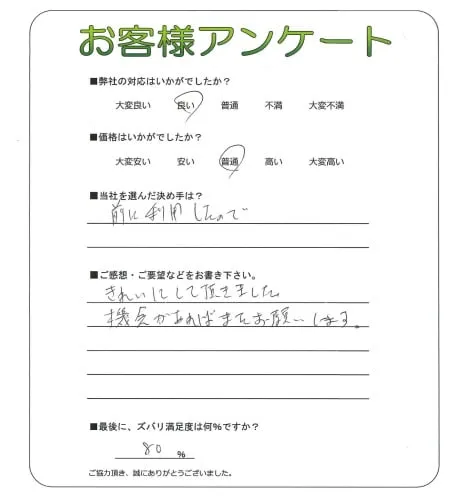 お客様アンケート
■弊社の対応はいかがでしたか？
大変良い 良い 普通 不満 大変不満
■価格はいかがでしたか？
大変安い 安い 普通 高い 大変高い
■当社を選んだ決め手は？
前に利用したので
■ご感想・ご要望などをお書き下さい。
きれいにして頂きました。
機会があればまたお願いします。
■最後に、ズバリ満足度は何％ですか？
80 ％
ご協力頂き、誠にありがとうございました。